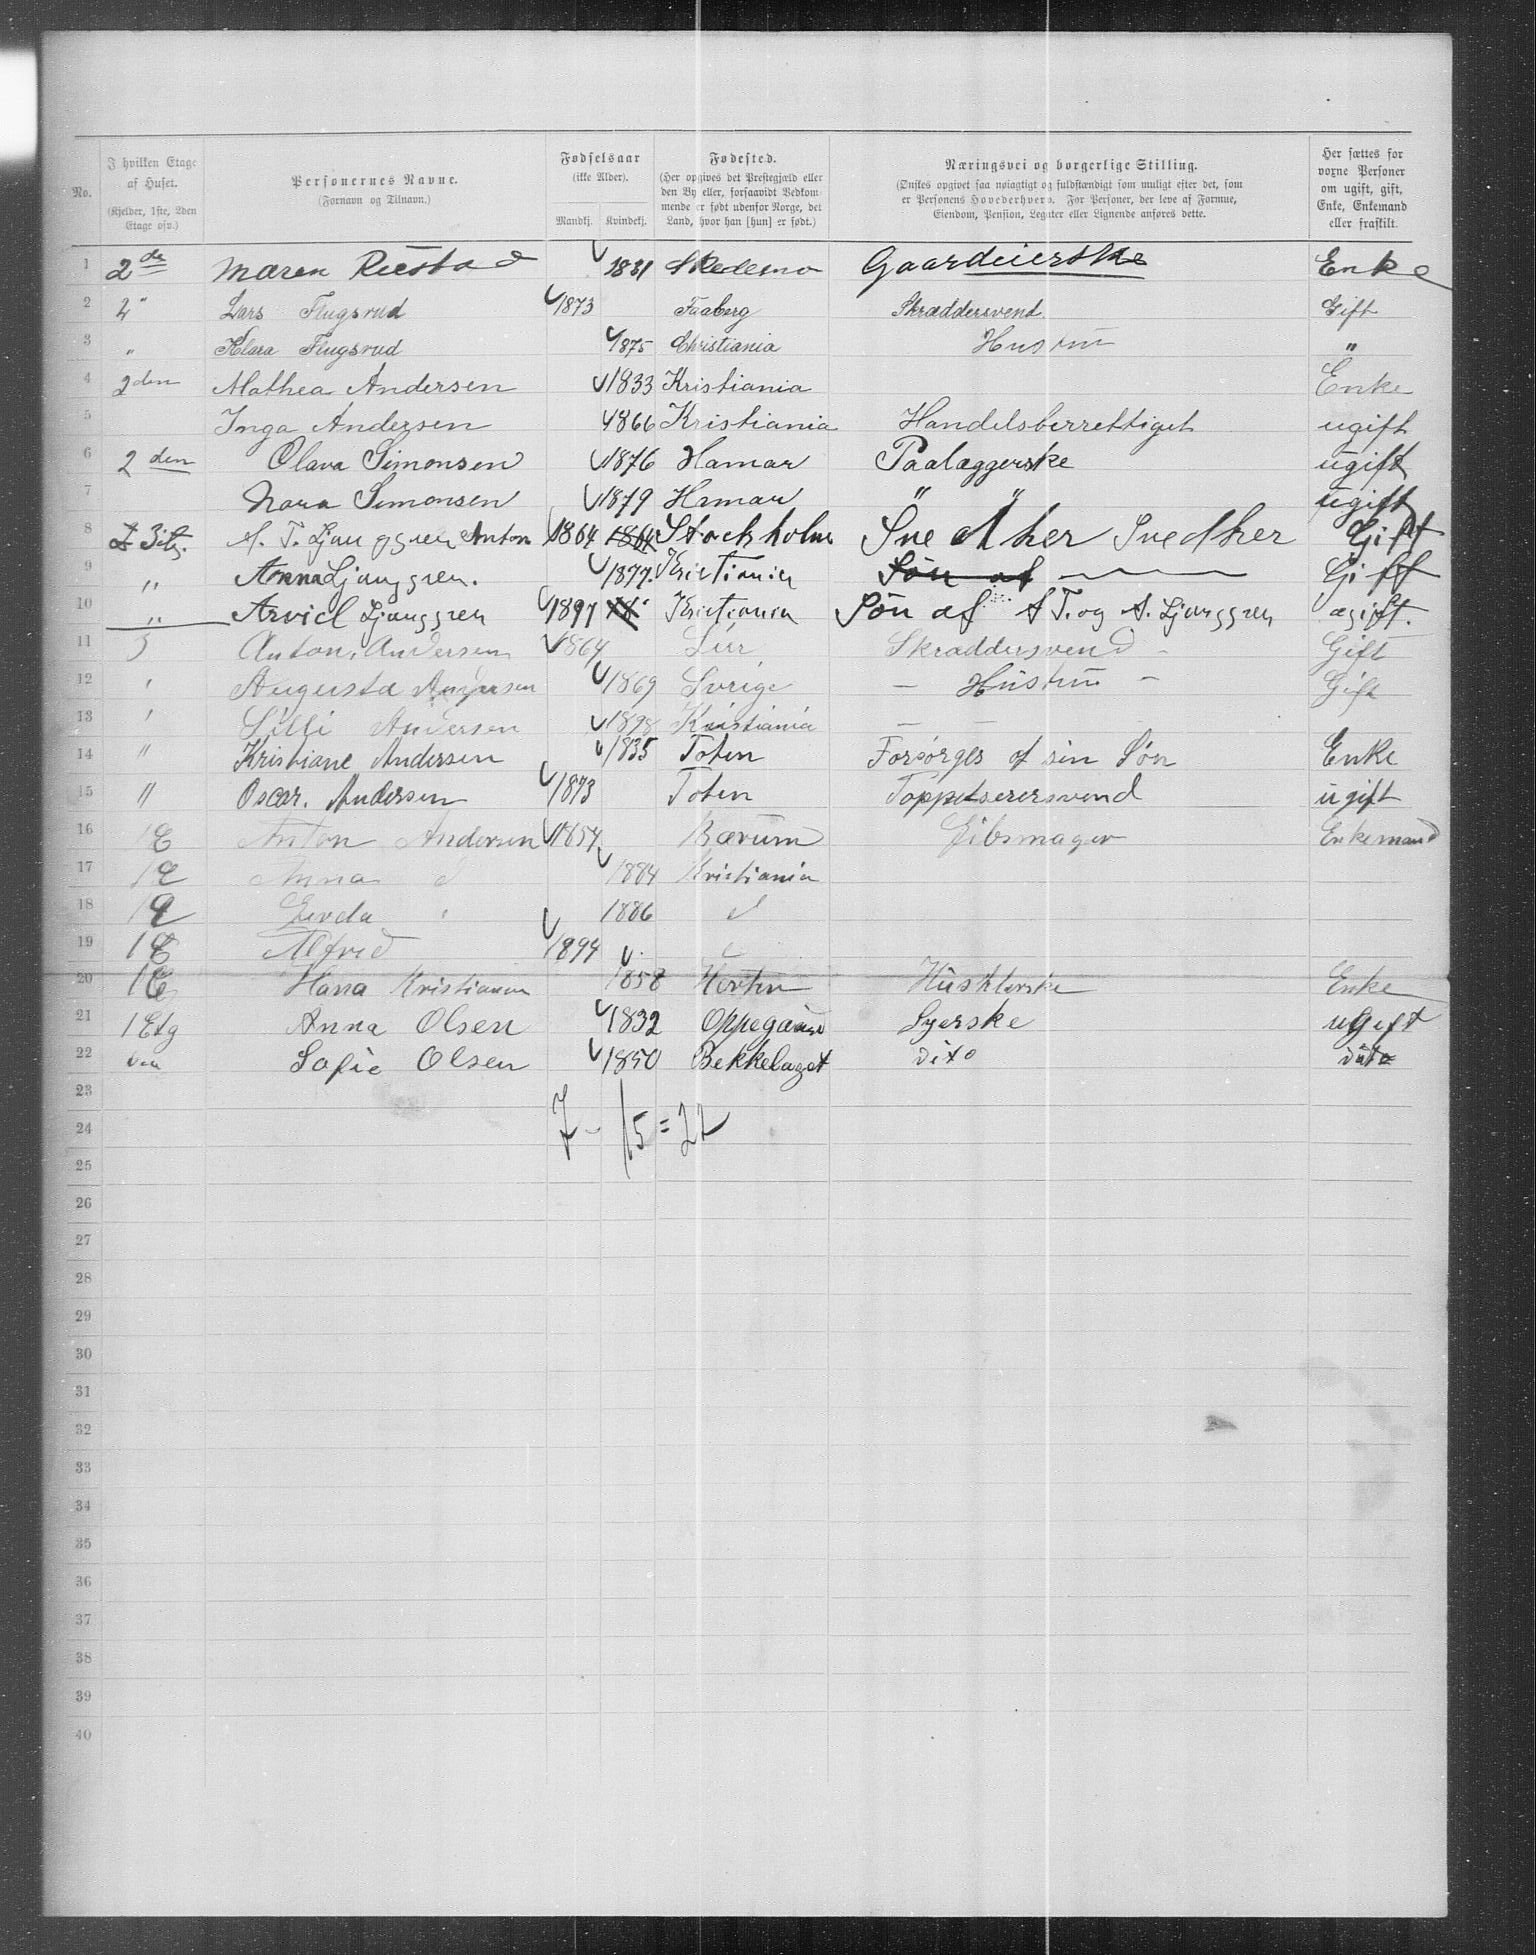 No.
I hvilken Etage af Huset. (Kjelder, 1ste, 2den Etage osv.)
Personernes Navne. (Fornavn og Tilnavn.)
Fødselsaar (ikke Alder). Mandkj. Kvindekj.
Fødested. (Her opgives det Prestegjæld eller den By eller, forsaavidt Vedkommende er født udenfor Norge, det Land, hvor han [hun] er født.)
Næringsvei og borgerlige Stilling. (Ønskes opgivet saa nøiagtigt og fuldstændigt som muligt efter det, som er Personens Hovederhverv. For Personer, der leve af Formue, Eiendom, Pension, Legater eller Lignende anføres dette.
Her sættes for voxne Personer om ugift, gift, Enke, Enkemand eller fraskilt.
1 2de Maren Ruestad 1831 Skedsmo Gaardeierske Enke
2 2" Lars Flugsrud 1873 Faaberg Skræddersvend Gift
3 " Klara Flugsrud 1875 Christiania Hustru "
4 2den Mathea Andersen 1833 Kristiania Enke
5 Inga Andersen 1866 Kristiania Handelsberrettiget ugift
6 2den Olava Simonsen 1876 Hamar Paalæggerske ugift
7 Nora Simonsen 1879 Hamar " " ugift
8 3 Etg. A. T. Ljunggren Anton 1864 1864 Stockholm Snedker Snedker Gift
9 " Anna Ljunggren. 1877. Kristiania Søn af Gift
10 " Arvid Ljunggren 1897 Kristiania Søn af A T. og A. Ljunggren ugift.
11 3 Anton Andersen 1864 Lier Skræddersvend - Gift
12 " Augusta Andersen 1869 Sverige - Hustru - Gift
13 " Lilli Andersen 1898 Kristiania - -
14 " Kristiane Andersen 1835 Toten Forsørges af sin Søn Enke
15 " Oscar. Andersen 1873 Toten Tappetserersvend ugift
16 1 E Anton Andersen 1854 Bærum Gibsmager Enkemand
17 1 E Anna d 1884 Kristiania
18 1 E Gerda " 1886 d
19 1 E Alfred 1894
20 1 E Hana Kristiansen 1858 Horten Husholderske Enke
21 1 Etg Anna Olsen 1832 Oppegaard Syerske ugift
22 Sofie Olsen 1850 Bekkelaget dito dito
23
7 - 15 = 22
24
25
26
27
28
29
30
31
32
33
34
35
36
37
38
39
40